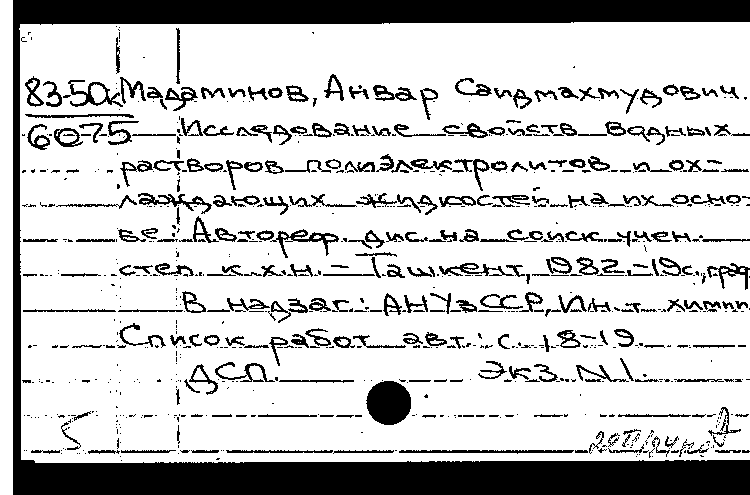 83-50к Мадаминов, Анвар Саидмахмудович.
6075 Исследование свойств водных
растворов полиэлектролитов и ох-
лаждающих жидкостей на их осно-
ве: Автореф. дис. на соиск учен.
степ. к.х.н. – Ташкент, 1982.-19с., граф
В надзаг.: АНУзССР, Ин.т химии
Список работ авт.: с. 18-19.
ДСП. Экз N1.
5